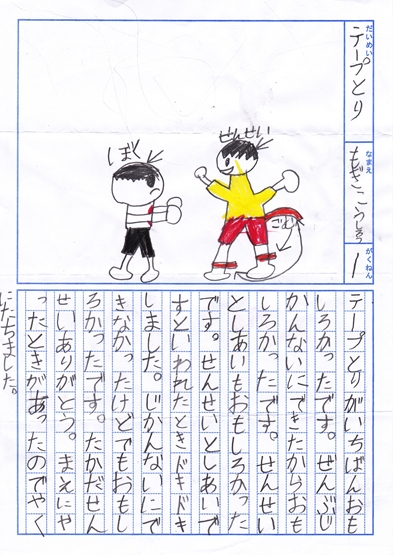 だいめい
テープとり
なまえ
もぎ
がくねん
1
せんせい
ぼく
テープとりがいちばんおも
しろかったです。ぜんぶじ
かんないにできたからおも
しろかったです。せんせい
としあいもおもしろかった
です。せんせいとしあいで
すといわれたときドキドキ
しました。じかんないにで
きなかったけどでもおもし
ろかったです。たかだせん
せいありがとう。まえにや
ったときがあったのでやく
にたちました。